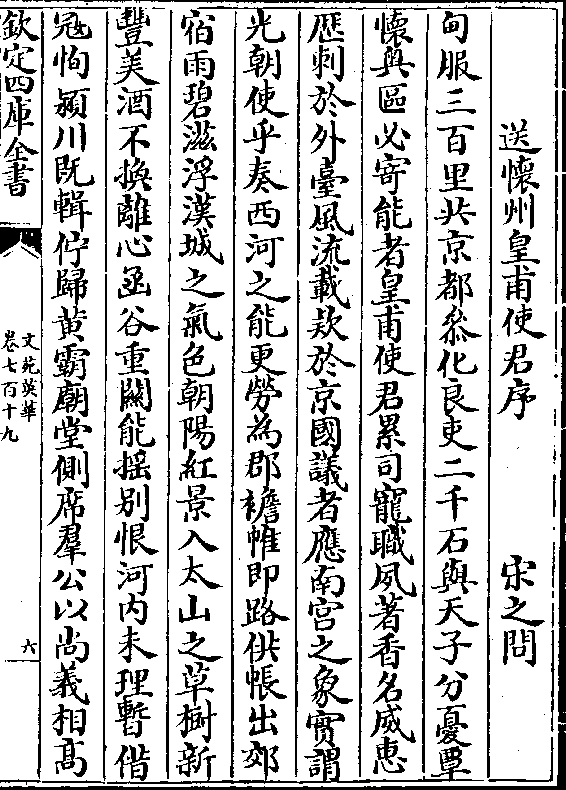 送懷州皇甫使君序　宋之問
甸服三百里共京都叅化良吏二千石與天子分憂覃
懷奥區必寄能者皇甫使君累司寵職夙著香名威惠
歴刺於外臺風流載欵於京國議者應南宫之象實謂
光朝使乎奏西河之能更勞為郡襜帷即路供帳出郊
宿雨碧滋浮漢城之氣色朝陽紅景入太山之草樹新
豐美酒不換離心函谷重關能揺别恨河内未理暫借
冦恂潁川既輯佇歸黄霸廟堂側席羣公以尚義相髙
欽定四庫全書
文苑英華
卷七百十九
六